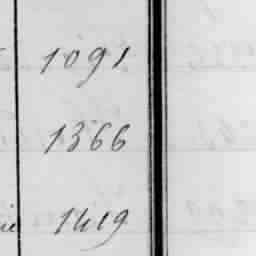 1091
1366
1419